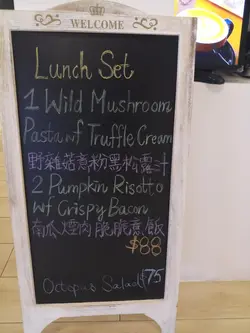 WELCOME
Lunch Set
1 Wild Mushroom
Pasta w/ Truffle Cream
野雜菇意粉黑松露汁
2 Pumpkin Risotto
w/ Crispy Bacon
南瓜煙肉脆脆意飯
$88
Octopus Salad 75